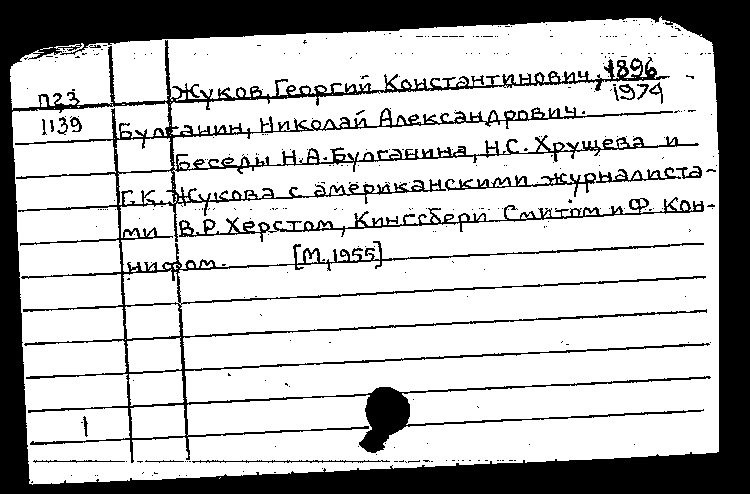 Жуков, Георгий Константинович, 1896
1974
П23
1139
Булганин, Николай Александрович.
Беседы Н.А. Булганина, Н.С. Хрущева и
Г.К. Жукова с американскими журналиста-
ми В.Р. Херстом, Кингсбери Смитом и Ф. Кон-
нифом. [М., 1955]
1